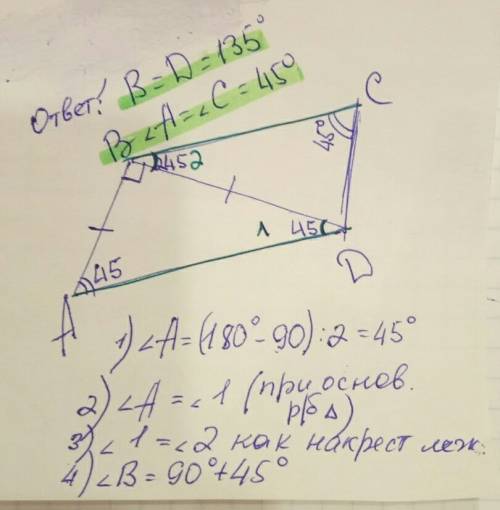 Ответ! B = D = 135°
∠A = ∠C = 45°
B
C
45 2
45°
1
45
45
A
D
1) ∠A = (180° - 90) : 2 = 45°
2) ∠A = ∠1 (при основ.
р/б ∆)
3) ∠1 = ∠2 как накрест леж.
4) ∠B = 90° + 45°